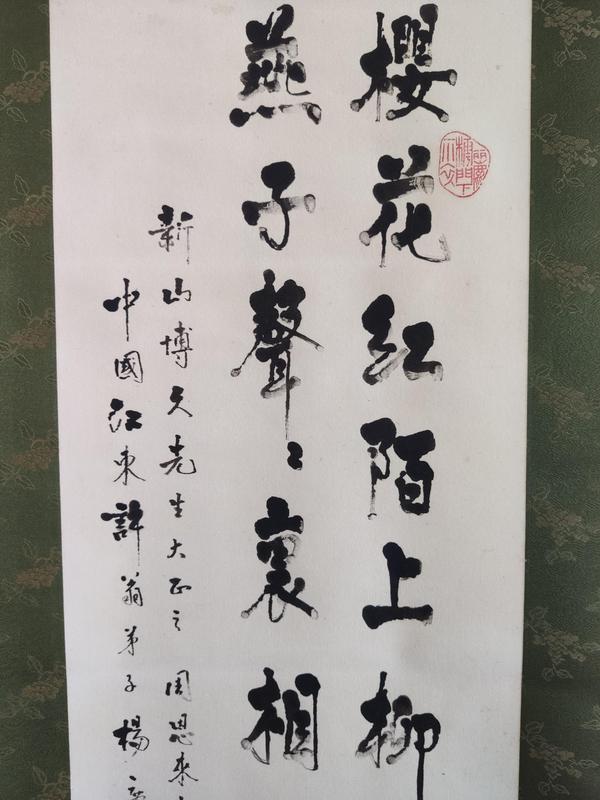 櫻花紅陌上柳
燕子聲〻裏相
新山博久先生大正之 周恩来
中國江東許翁弟子楊